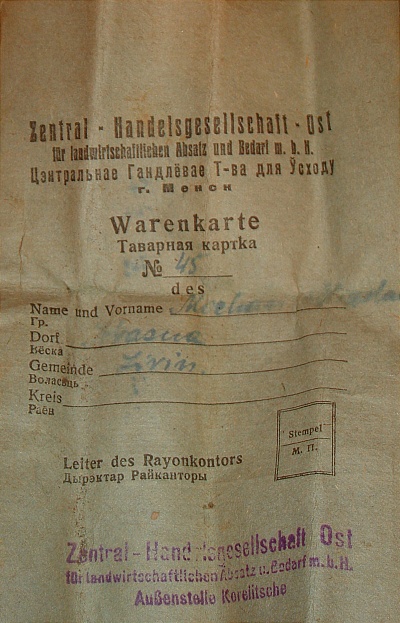 Zentral - Handelsgesellschaft - Ost
für landwirtschaftlichen Absatz und Bedarf m. b. H.
Цэнтральнае Гандлёвае Т-ва для Ўсходу
г. Менск
Warenkarte
Таварная картка
№ 45
des
Name und Vorname
Гр.
Dorf
Вёска
Gemeinde
Воласьць
Kreis
Раён
Stempel
М. П.
Leiter des Rayonkontors
Дырэктар Райканторы
Zentral - Handelsgesellschaft Ost
für landwirtschaftlichen Absatz u. Bedarf m. b. H.
Außenstelle Korelitsche